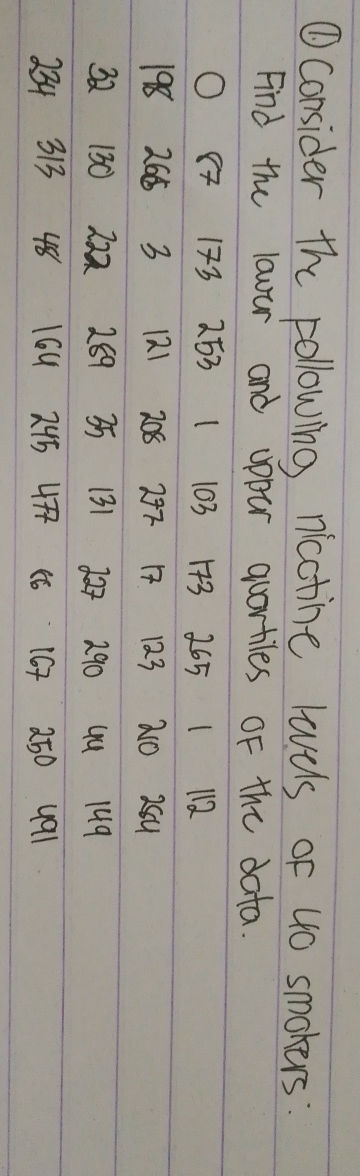 ① Consider the following nicotine levels of 40 smokers:
Find the lower and upper quartiles of the data.
0 87 173 253 1 103 173 265 1 112
198 266 3 121 208 277 17 123 210 284
32 130 222 289 35 131 227 290 44 149
234 313 48 164 245 477 86 167 250 491